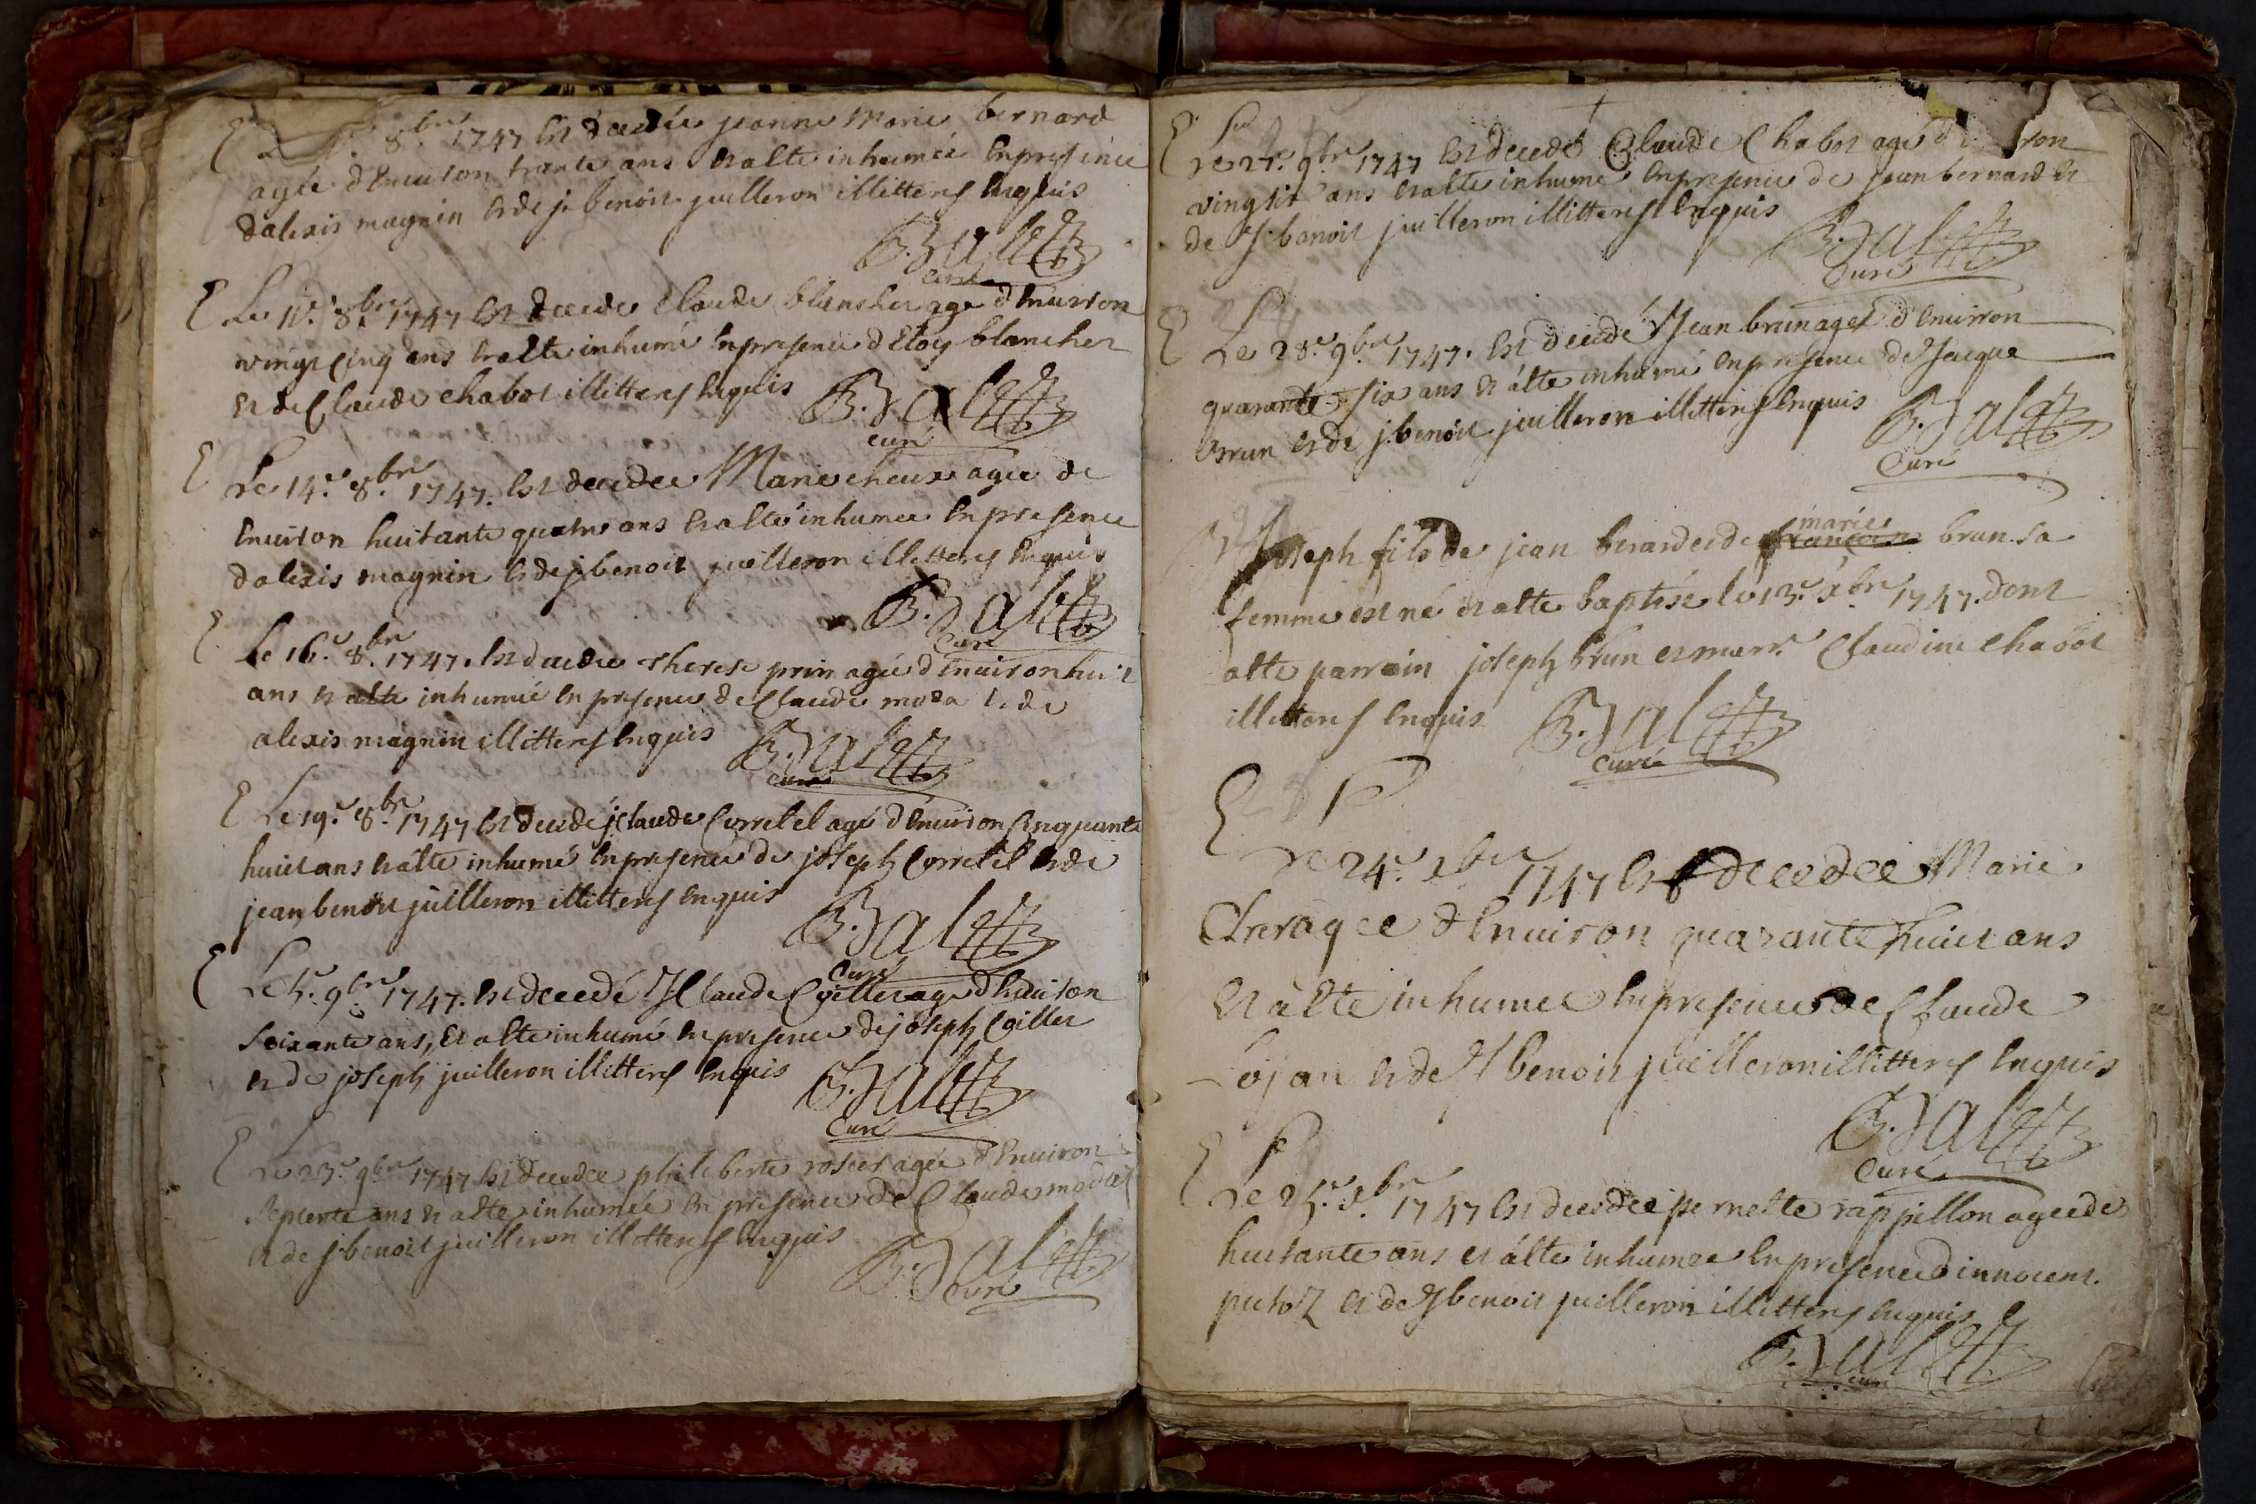 8.bre 1747 est decedée jeanne Marie bernard
agée d'Enuiron trante ans Et a Eté inhumée En presence
d'alexis magnin Et de j. benoit juilleron illitterés Enquis
B. Jalet
Curé
Le 11.e 8.bre 1747 Est decedé Claude blancher agé d'Enuiron
vingt Cinq ans Et a Eté inhumé En presence d'Eloy blancher
Et de Claude Chabot illitterés Enquis
B. Jalet
curé
Le 14.e 8.bre 1747. Est decedée Marie cheux agée de
Enuiron huitante quatre ans Et a Eté inhumée En presence
d'alexis magnin Et de j. benoit juilleron illitterés Enquis
B. Jalet
Curé
Le 16.e 8.bre 1747. Est decedée Therese prin agée d'Enuiron huit
ans Et a Eté inhumée En presence de Claude moda Et de
alexis magnin illitterés Enquis
B. Jalet
Curé
Le 19.e 8.bre 1747 Est decedé j. Claude Corretel agé d'Enuiron Cinquante
huit ans Et a Eté inhumé En presence de joseph Corretel Et de
jean benoit juilleron illitterés Enquis
B. Jalet
Curé
Le 5.e 9.bre 1747. Est decedé J. Claude Coiller agé d'Enuiron
Soixante ans, Et a Eté inhumé En presence de joseph Coiller
Et de joseph juilleron illitterés Enquis
B. Jalet
Curé
Le 23.e 9.bre 1747 Est decedée philiberte rosset agée d'Enuiron
Septente ans Et a Eté inhumée En presence de Claude moda
Et de J. benoit juilleron illitterés Enquis
B. Jalet
Curé
Le 27.e 9.bre 1747 Est decedé Claude Chabot agé
ving sit ans Et a Eté inhumé En presence de jean bernard Et
de J. benoit juilleron illitterés Enquis
B. Jalet
Curé
Le 28.e 9.bre 1747. Est decedé Jean brun agé d'Enuiron
quarante six ans Et a Eté inhumé En presence de Jacque
brun Et de j. benoit juilleron illitterés Enquis
B. Jalet
Curé
marie
Joseph fils de jean berard et de francoise brun sa
femme est né Et a Eté baptisé le 13.e x.bre 1747. dont
a Eté parrain joseph brun et marr. Claudine Chabot
illitterés Enquis
B. Jalet
Curé
Le 24.e x.bre 1747 Est decedée Marie
agée d'Enuiron quarante huit ans
Et a Eté inhumée En presence de Claude
Lojan Et de J. benoit juilleron illitterés Enquis
B. Jalet
Curé
Le 25.e x.bre 1747 Est decedée pernette rappillon agée de
huitante ans Et a Eté inhumée En presence d'innocent
putoz Et de J. benoit juilleron illitterés Enquis
B. Jalet
curé